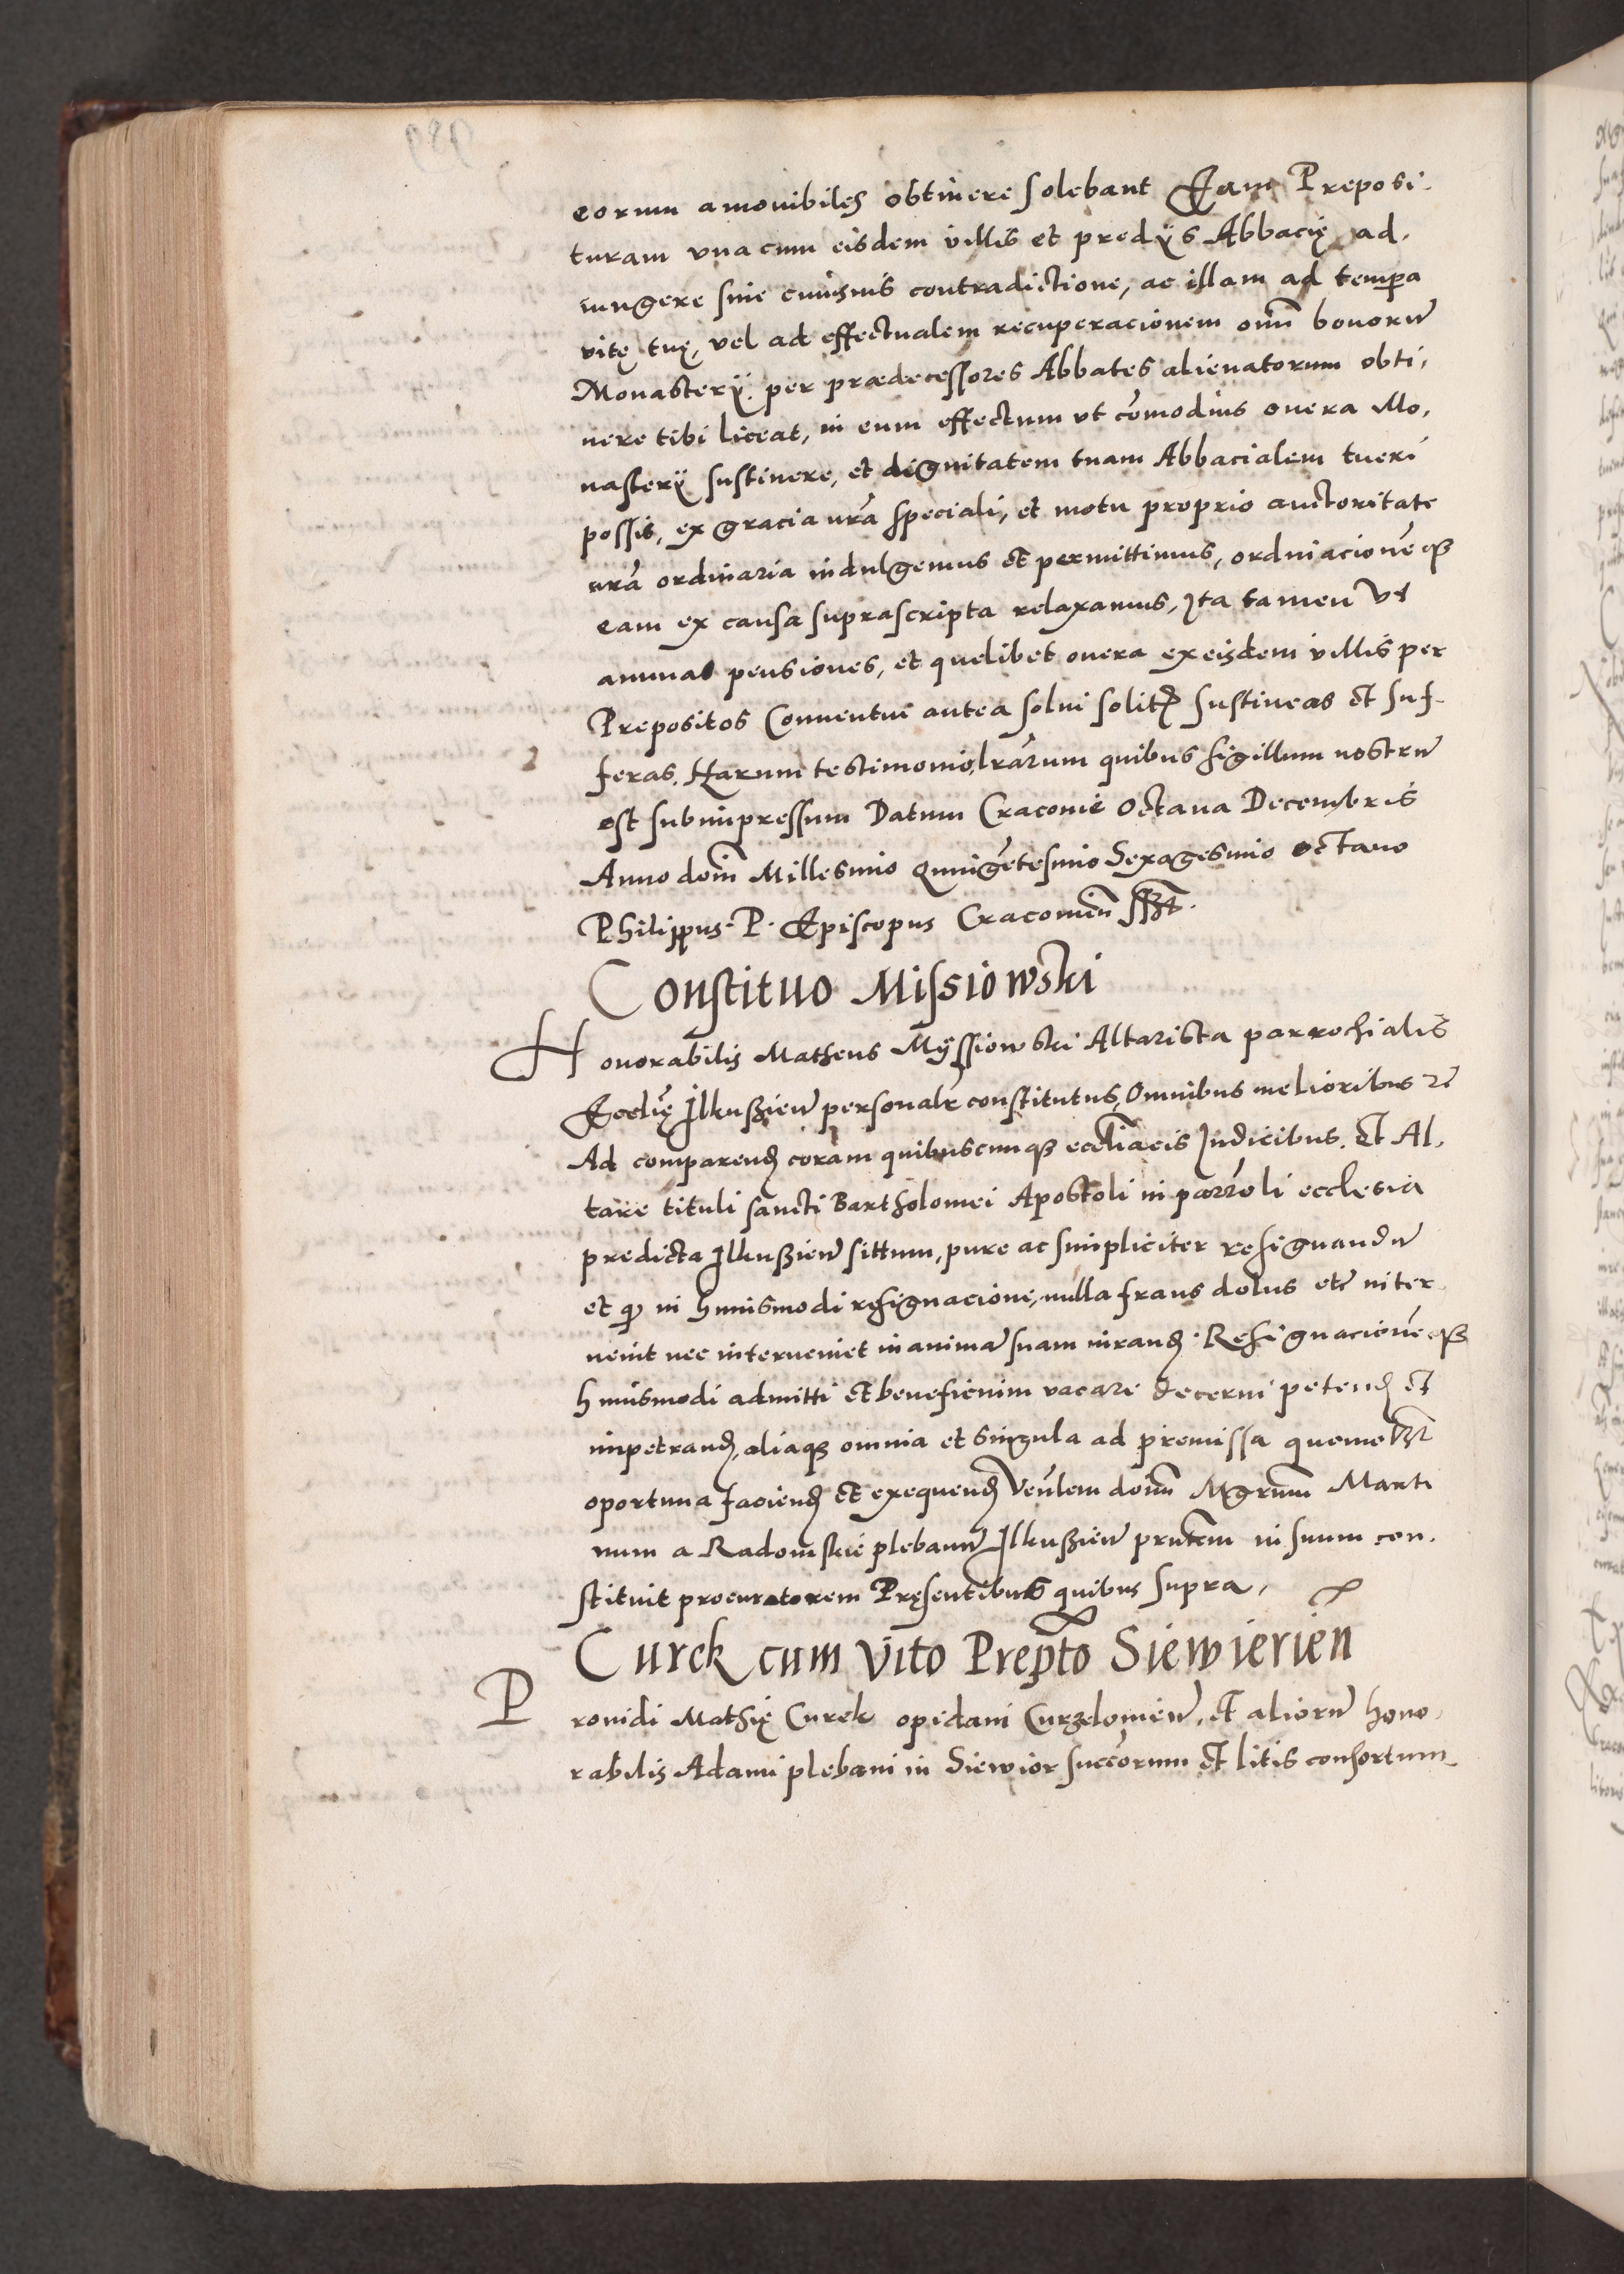 eorum amouibiles obtinere solebant Eam Preposi-
turam vna cum eisdem villis et predijs Abbacię ad-
iungere sine cuiusuis contradictione, ac illam ad tempora
vitę tuę, vel ad effectualem recuperacionem oim̄ bonorum̄
Monasterij per prædecessores Abbates alienatorum obti-
nere tibi liceat, in eum effectum vt com̄odius onera Mo-
nasterij sustinere, et dignitatem tuam Abbacialem tueri
possis, ex gracia nrā speciali, et motu proprio auctoritate
nrā ordinaria indulgemus et permittimus, ordinacionē q̧
eam ex causa suprascripta relaxamus, Ita tamen vt
annuas pensiones, et quelibet onera ex eisdem villis per
Prepositos Conuentui antea solui solitꝭ sustineas et suf-
feras. Harum testimonio lrārum quibus sigillum nostrum̄
est subimpressum Datum Cracouie Octaua Decembris
Anno domī Millesimo Quingētesimo Sexagesimo octauo
Philippus. P. Episcopus Cracouień sszt.
Constituo Missiowski
Honorabilis Matheus Mÿssiowski Altarista parrochialis
Ecclię Ilkussień personalr̄ constitutus, Omnibus melioribus etc̄
Ad comparend̄ coram quibuscunq̧ eccliācis Iudicibus. Et Al-
tare tituli sancti Bartholomei Apostoli in parrōli ecclesia
predicta Ilkussień sittum, pure ac simpliciter resignandum̄
et q̧ in huiusmodi resignacione, nulla fraus dolus etc̄ inter-
uenit nec interueniet in animā suam iurand̄. Resignacionē q̧
huiusmodi admitti et beneficium vacare decerni petend̄ et
impetrand̄, aliaq̧ omnia et singula ad premissa quomolbzt
oportuna faciend̄ et exequend̄ Venl̄em domī Mgrūm Marti
num a Radomskie plebanū Ilkussień prnt̄em in suum con-
stituit procuratorem Pręsentibus quibus supra,
Curek cum Vito Prepto Siewierień
Prouidi Mathię Curek opidani Curzelouień, et aliorū hono-
rabilis Adami plebani in Siewior succorum et litis consortum